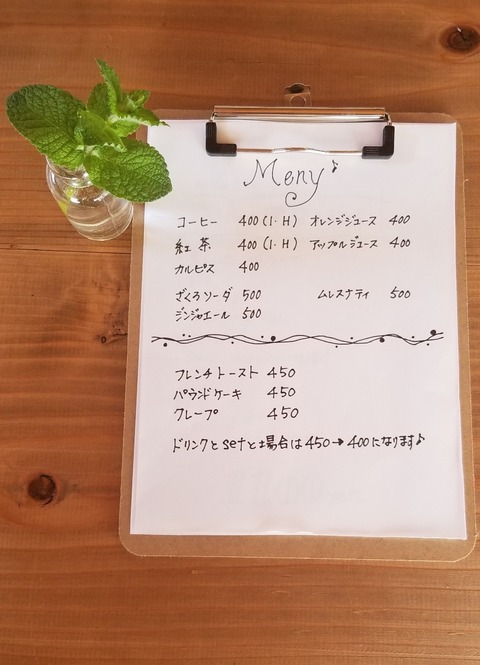 Menu♪
コーヒー 400 (I・H) オレンジジュース 400
紅茶 400 (I・H) アップルジュース 400
カルピス 400
ざくろソーダ 500 ムレスナティ 500
ジンジャエール 500
フレンチトースト 450
パウンドケーキ 450
クレープ 450
ドリンクとsetと場合は450→400になります♪